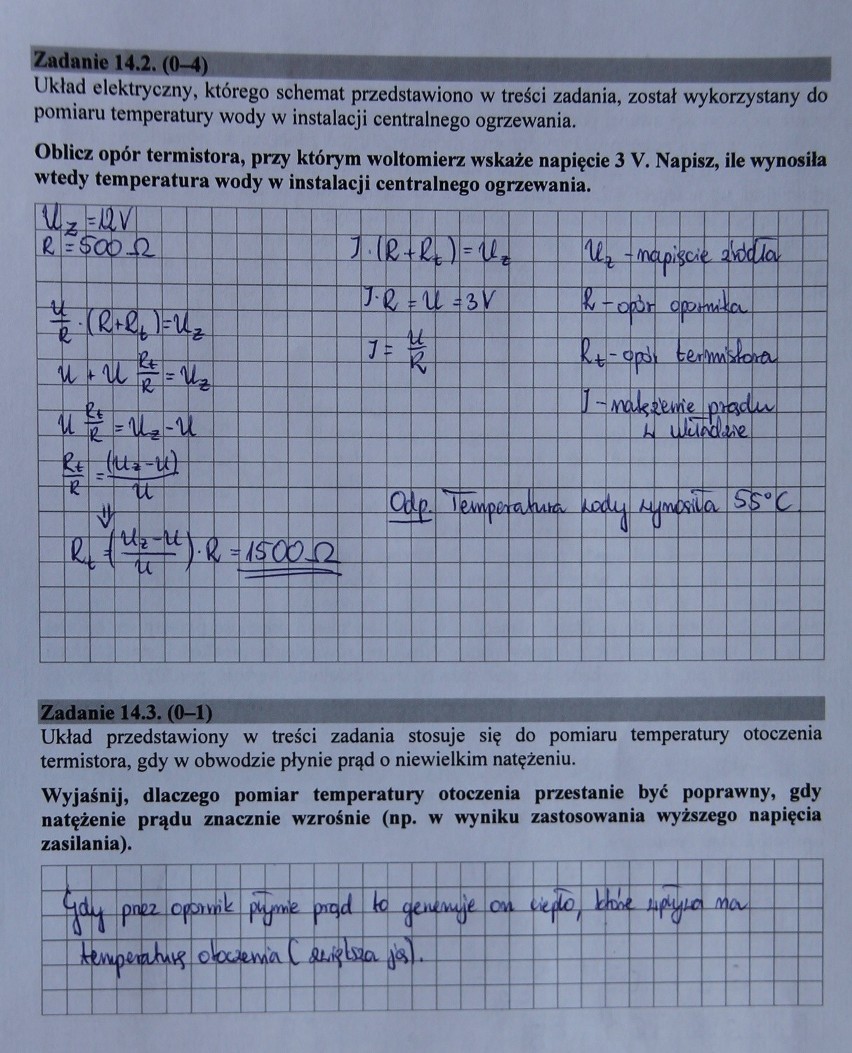 Zadanie 14.2. (0–4)
Układ elektryczny, którego schemat przedstawiono w treści zadania, został wykorzystany do
pomiaru temperatury wody w instalacji centralnego ogrzewania.
Oblicz opór termistora, przy którym woltomierz wskaże napięcie 3 V. Napisz, ile wynosiła
wtedy temperatura wody w instalacji centralnego ogrzewania.
U_z = 12V
R = 500 Ω
U/R · (R+R_t) = U_z
U + U R_t/R = U_z
U R_t/R = U_z - U
R_t/R = (U_z - U)/U
⇓
R_t = (U_z - U / U) · R = 1500 Ω
I · (R + R_t) = U_z
I · R = U = 3V
I = U/R
U_z - napięcie źródła
R - opór opornika
R_t - opór termistora
I - natężenie prądu
w układzie
Odp. Temperatura wody wynosiła 55°C
Zadanie 14.3. (0–1)
Układ przedstawiony w treści zadania stosuje się do pomiaru temperatury otoczenia
termistora, gdy w obwodzie płynie prąd o niewielkim natężeniu.
Wyjaśnij, dlaczego pomiar temperatury otoczenia przestanie być poprawny, gdy
natężenie prądu znacznie wzrośnie (np. w wyniku zastosowania wyższego napięcia
zasilania).
Gdy przez opornik płynie prąd to generuje on ciepło, które wpływa na
temperaturę otoczenia (zwiększa ją).